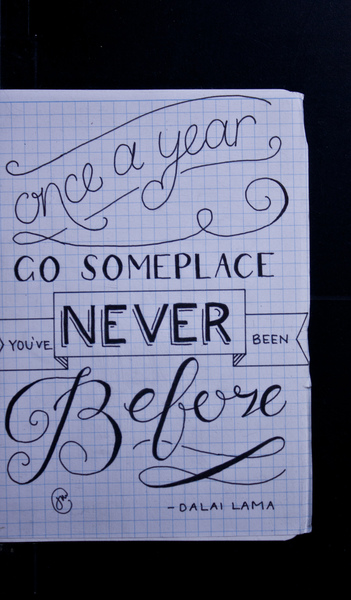 once a year
GO SOMEPLACE
YOU'VE NEVER BEEN
Before
-DALAI LAMA